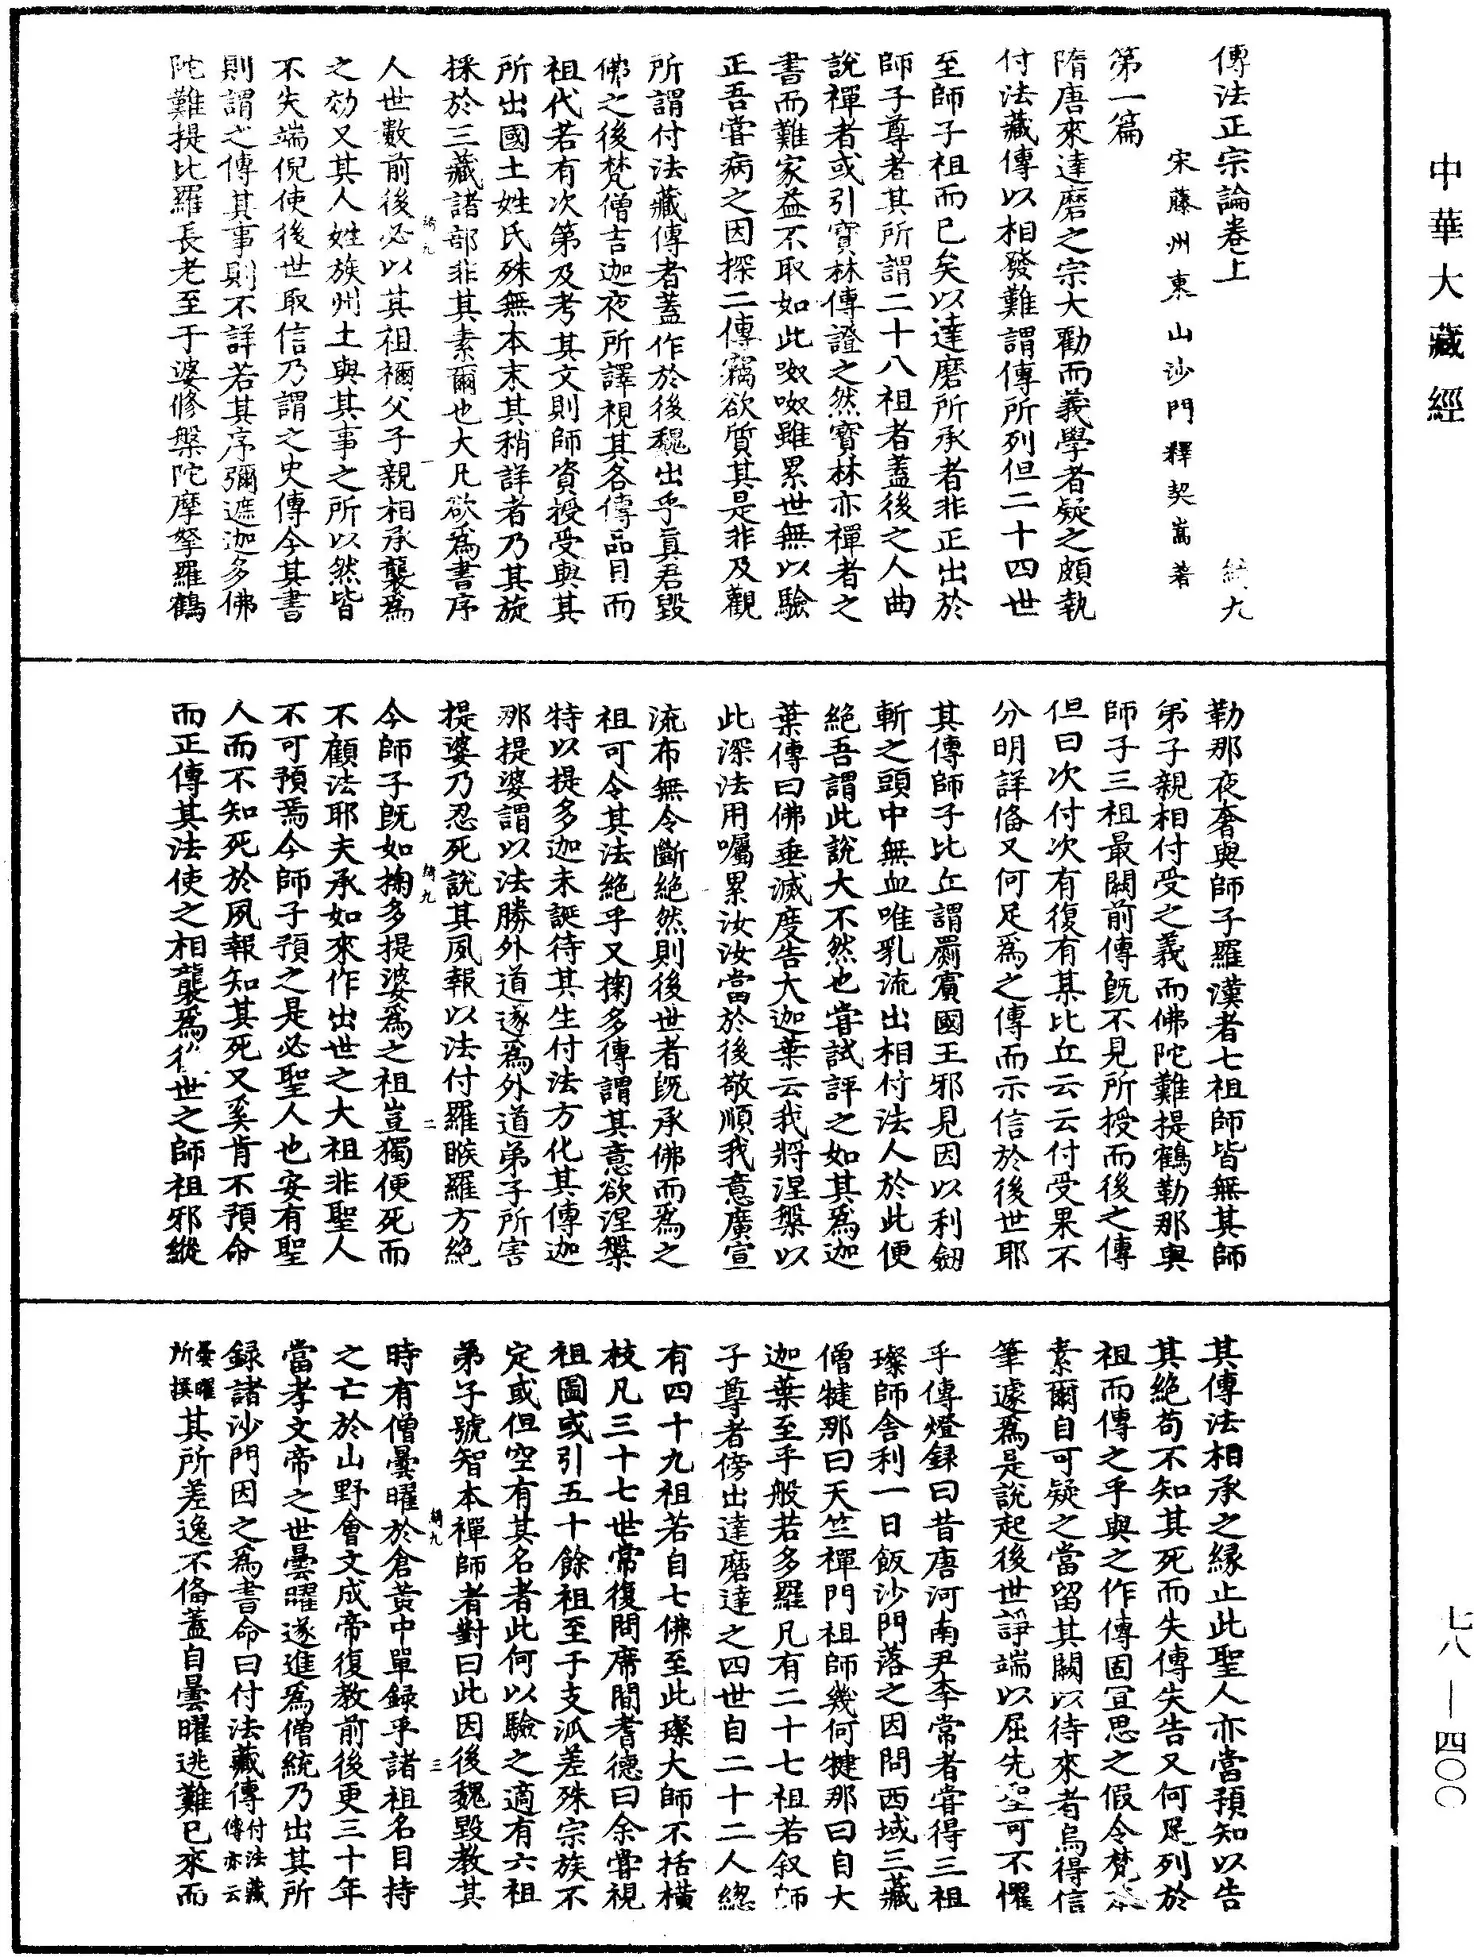 中華大藏經
傳法正宗論卷上　綺九
宋藤州東山沙門釋契嵩著
第一篇
隋唐來達磨之宗大勸而義學者疑之頗執
付法藏傳以相發難謂傳所列但二十四世
至師子祖而已矣以達磨所承者非正出於
師子尊者其所謂二十八祖者蓋後之人曲
說禪者或引寶林傳證之然寶林亦禪者之
書而難家益不取如此呶呶雖累世無以驗
正吾嘗病之因探二傳竊欲質其是非及觀
所謂付法藏傳者蓋作於後魏出乎真君毀
佛之後梵僧吉迦夜所譯視其各傳品目而
祖代若有次第及考其文則師資授受與其
所出國土姓氏殊無本末其稍詳者乃其旋
採於三藏諸部非其素爾也大凡欲為書序
綺九　一
人世數前後必以其祖禰父子親相承襲為
之効又其人姓族州土與其事之所以然皆
不失端倪使後世取信乃謂之史傳今其書
則謂之傳其事則不詳若其序彌遮迦多佛
陀難提比羅長老至于婆修槃陀摩拏羅鶴
勒那夜奢與師子羅漢者七祖師皆無其師
弟子親相付受之義而佛陀難提鶴勒那與
師子三祖最闕前傳既不見所授而後之傳
但曰次付次有復有某比丘云云付受果不
分明詳俻又何足為之傳而示信於後世耶
其傳師子比丘謂罽賓國王邪見因以利劒
斬之頭中無血唯乳流出相付法人於此便
絕吾謂此說大不然也嘗試評之如其為迦
葉傳曰佛垂滅度告大迦葉云我將涅槃以
此深法用囑累汝汝當於後敬順我意廣宣
流布無令斷絕然則後世者既承佛而為之
祖可令其法絕乎又掬多傳謂其意欲涅槃
特以提多迦未誕待其生付法方化其傳迦
那提婆謂以法勝外道遂為外道弟子所害
提婆乃忍死說其夙報以法付羅睺羅方絕
綺九　二
今師子既如掬多提婆為之祖豈獨便死而
不顧法耶夫承如來作出世之大祖非聖人
不可預焉今師子預之是必聖人也安有聖
人而不知死於夙報知其死又奚肯不預命
而正傳其法使之相襲為後世之師祖邪縱
其傳法相承之緣止此聖人亦當預知以告
其絕苟不知其死而失傳失告又何足列於
祖而傳之乎與之作傳固宜思之假令梵本
素爾自可疑之當留其闕以待來者烏得信
筆遽為是說起後世諍端以屈先聖可不懼
乎傳燈録曰昔唐河南尹李常者嘗得三祖
璨師舍利一日飯沙門落之因問西域三藏
僧犍那曰天竺禪門祖師幾何犍那曰自大
迦葉至乎般若多羅凡有二十七祖若叙師
子尊者傍出達磨達之四世自二十二人總
有四十九祖若自七佛至此璨大師不括橫
枝凡三十七世常復問席間耆德曰余嘗視
祖圖或引五十餘祖至于支派差殊宗族不
定或但空有其名者此何以驗之適有六祖
弟子號智本禪師者對曰此因後魏毀教其
綺九　三
時有僧曇曜於倉黃中單録乎諸祖名目持
之亡於山野會文成帝復教前後更三十年
當孝文帝之世曇曜遂進為僧統乃出其所
録諸沙門因之為書命曰付法藏傳付法藏傳亦云
曇曜所撰其所差逸不俻蓋自曇曜逃難已來而
七八—四〇〇